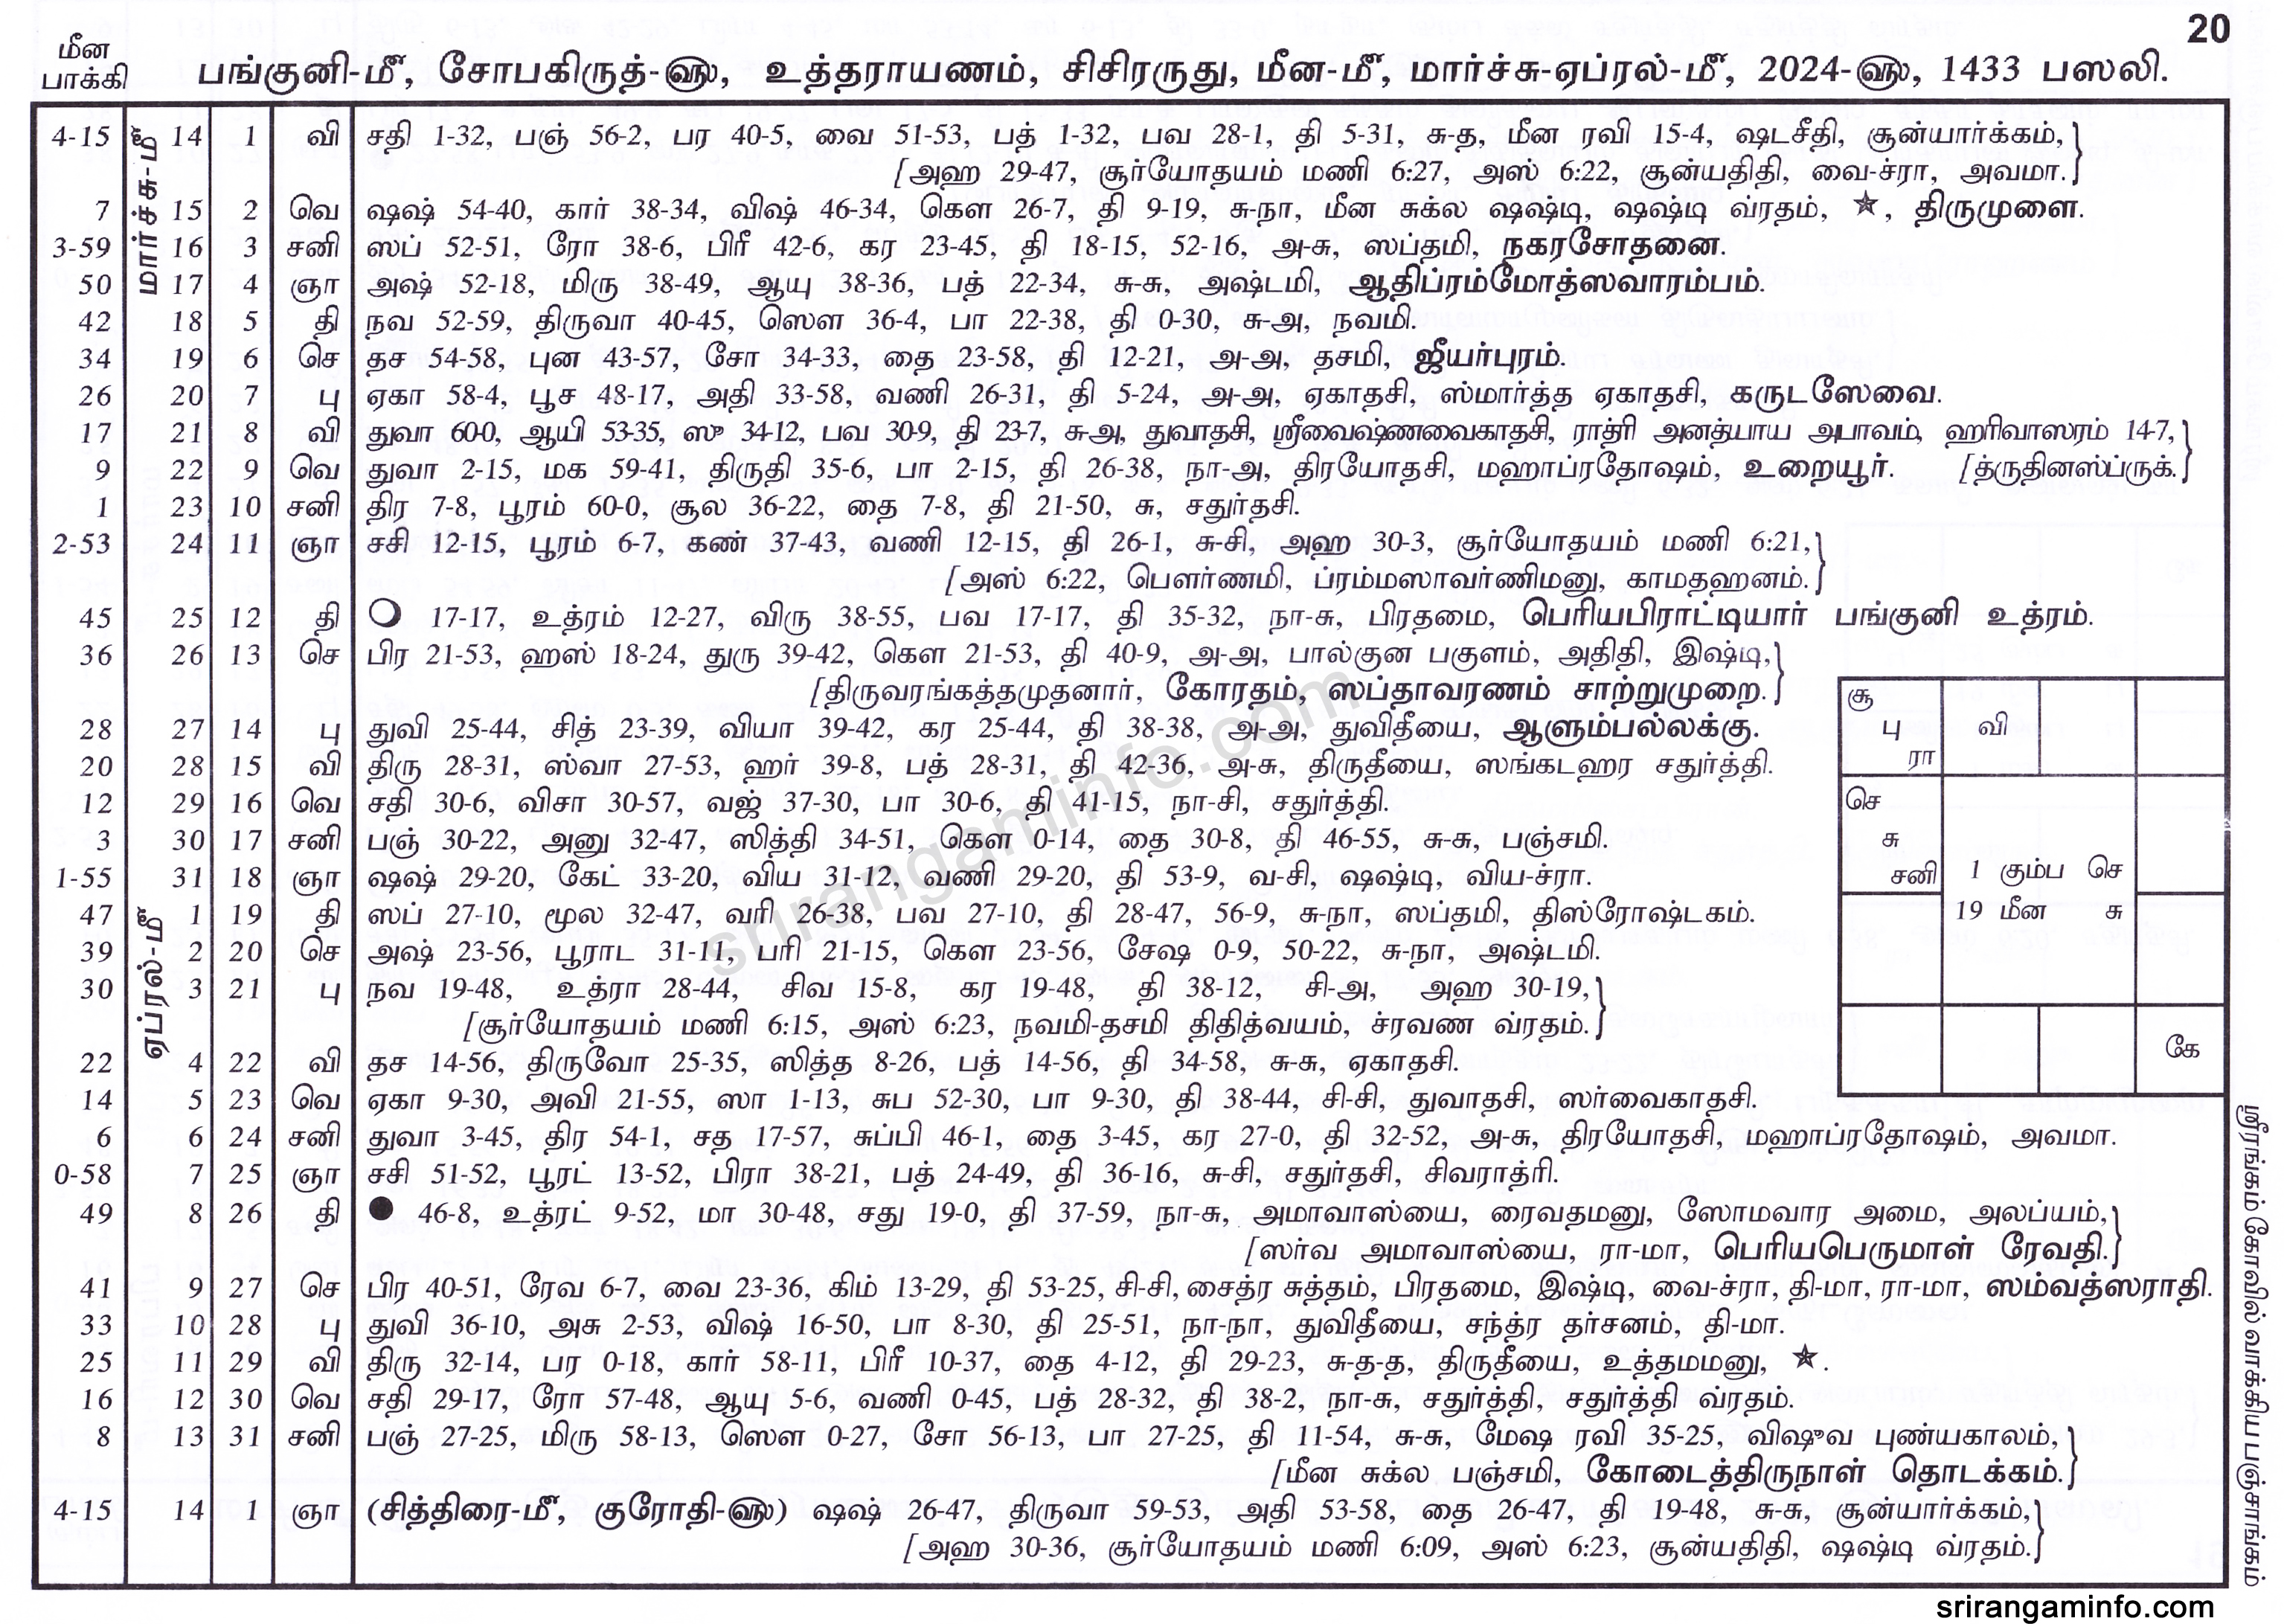 20
மீன
பாக்கி
பங்குனி-மீ, சோபகிருத்-௵, உத்தராயணம், சிசிரருது, மீன-மீ, மார்ச்சு-ஏப்ரல்-மீ, 2024-௵, 1433 பஸலி.
மார்ச்சு-மீ
4-15 14 1 வி சதி 1-32, பஞ் 56-2, பர 40-5, வை 51-53, பத் 1-32, பவ 28-1, தி 5-31, சு-த, மீன ரவி 15-4, ஷடசீதி, சூன்யார்க்கம்,}
[அஹ 29-47, சூர்யோதயம் மணி 6:27, அஸ் 6:22, சூன்யதிதி, வை-ச்ரா, அவமா.}
7 15 2 வெ ஷஷ் 54-40, கார் 38-34, விஷ் 46-34, கௌ 26-7, தி 9-19, சு-நா, மீன சுக்ல ஷஷ்டி, ஷஷ்டி வ்ரதம், ★, திருமுளை.
3-59 16 3 சனி ஸப் 52-51, ரோ 38-6, பிரீ 42-6, கர 23-45, தி 18-15, 52-16, அ-சு, ஸப்தமி, நகரசோதனை.
50 17 4 ஞா அஷ் 52-18, மிரு 38-49, ஆயு 38-36, பத் 22-34, சு-சு, அஷ்டமி, ஆதிப்ரம்மோத்ஸவாரம்பம்.
42 18 5 தி நவ 52-59, திருவா 40-45, ஸௌ 36-4, பா 22-38, தி 0-30, சு-அ, நவமி.
34 19 6 செ தச 54-58, புன 43-57, சோ 34-33, தை 23-58, தி 12-21, அ-அ, தசமி, ஜீயர்புரம்.
26 20 7 பு ஏகா 58-4, பூச 48-17, அதி 33-58, வணி 26-31, தி 5-24, அ-அ, ஏகாதசி, ஸ்மார்த்த ஏகாதசி, கருடஸேவை.
17 21 8 வி துவா 60-0, ஆயி 53-35, ஸு 34-12, பவ 30-9, தி 23-7, சு-அ, துவாதசி, ஸ்ரீவைஷ்ணவைகாதசி, ராத்ரி அனத்யாய அபாவம், ஹரிவாஸரம் 14-7,}
9 22 9 வெ துவா 2-15, மக 59-41, திருதி 35-6, பா 2-15, தி 26-38, நா-அ, திரயோதசி, மஹாப்ரதோஷம், உறையூர். [த்ருதினஸ்ப்ருக்.}
1 23 10 சனி திர 7-8, பூரம் 60-0, சூல 36-22, தை 7-8, தி 21-50, சு, சதுர்தசி.
2-53 24 11 ஞா சசி 12-15, பூரம் 6-7, கண் 37-43, வணி 12-15, தி 26-1, சு-சி, அஹ 30-3, சூர்யோதயம் மணி 6:21,}
[அஸ் 6:22, பௌர்ணமி, ப்ரம்மஸாவர்ணிமனு, காமதஹனம்.}
45 25 12 தி ○ 17-17, உத்ரம் 12-27, விரு 38-55, பவ 17-17, தி 35-32, நா-சு, பிரதமை, பெரியபிராட்டியார் பங்குனி உத்ரம்.
36 26 13 செ பிர 21-53, ஹஸ் 18-24, துரு 39-42, கௌ 21-53, தி 40-9, அ-அ, பால்குன பகுளம், அதிதி, இஷ்டி,}
[திருவரங்கத்தமுதனார், கோரதம், ஸப்தாவரணம் சாற்றுமுறை.}
28 27 14 பு துவி 25-44, சித் 23-39, வியா 39-42, கர 25-44, தி 38-38, அ-அ, துவிதீயை, ஆளும்பல்லக்கு.
20 28 15 வி திரு 28-31, ஸ்வா 27-53, ஹர் 39-8, பத் 28-31, தி 42-36, அ-சு, திருதீயை, ஸங்கடஹர சதுர்த்தி.
12 29 16 வெ சதி 30-6, விசா 30-57, வஜ் 37-30, பா 30-6, தி 41-15, நா-சி, சதுர்த்தி.
3 30 17 சனி பஞ் 30-22, அனு 32-47, ஸித்தி 34-51, கௌ 0-14, தை 30-8, தி 46-55, சு-சு, பஞ்சமி.
1-55 31 18 ஞா ஷஷ் 29-20, கேட் 33-20, விய 31-12, வணி 29-20, தி 53-9, வ-சி, ஷஷ்டி, விய-ச்ரா.
ஏப்ரல்-மீ
47 1 19 தி ஸப் 27-10, மூல 32-47, வரி 26-38, பவ 27-10, தி 28-47, 56-9, சு-நா, ஸப்தமி, திஸ்ரோஷ்டகம்.
39 2 20 செ அஷ் 23-56, பூராட 31-11, பரி 21-15, கௌ 23-56, சேஷ 0-9, 50-22, சு-நா, அஷ்டமி.
30 3 21 பு நவ 19-48, உத்ரா 28-44, சிவ 15-8, கர 19-48, தி 38-12, சி-அ, அஹ 30-19,}
[சூர்யோதயம் மணி 6:15, அஸ் 6:23, நவமி-தசமி திதித்வயம், ச்ரவண வ்ரதம்.}
22 4 22 வி தச 14-56, திருவோ 25-35, ஸித்த 8-26, பத் 14-56, தி 34-58, சு-சு, ஏகாதசி.
14 5 23 வெ ஏகா 9-30, அவி 21-55, ஸா 1-13, சுப 52-30, பா 9-30, தி 38-44, சி-சி, துவாதசி, ஸர்வைகாதசி.
6 6 24 சனி துவா 3-45, திர 54-1, சத 17-57, சுப்பி 46-1, தை 3-45, கர 27-0, தி 32-52, அ-சு, திரயோதசி, மஹாப்ரதோஷம், அவமா.
0-58 7 25 ஞா சசி 51-52, பூரட் 13-52, பிரா 38-21, பத் 24-49, தி 36-16, சு-சி, சதுர்தசி, சிவராத்ரி.
49 8 26 தி ● 46-8, உத்ரட் 9-52, மா 30-48, சது 19-0, தி 37-59, நா-சு, அமாவாஸ்யை, ரைவதமனு, ஸோமவார அமை, அலப்யம்,}
[ஸர்வ அமாவாஸ்யை, ரா-மா, பெரியபெருமாள் ரேவதி.}
41 9 27 செ பிர 40-51, ரேவ 6-7, வை 23-36, கிம் 13-29, தி 53-25, சி-சி, சைத்ர சுத்தம், பிரதமை, இஷ்டி, வை-ச்ரா, தி-மா, ரா-மா, ஸம்வத்ஸராதி.
33 10 28 பு துவி 36-10, அசு 2-53, விஷ் 16-50, பா 8-30, தி 25-51, நா-நா, துவிதீயை, சந்த்ர தர்சனம், தி-மா.
25 11 29 வி திரு 32-14, பர 0-18, கார் 58-11, பிரீ 10-37, தை 4-12, தி 29-23, சு-த-த, திருதீயை, உத்தமமனு, ★.
16 12 30 வெ சதி 29-17, ரோ 57-48, ஆயு 5-6, வணி 0-45, பத் 28-32, தி 38-2, நா-சு, சதுர்த்தி, சதுர்த்தி வ்ரதம்.
8 13 31 சனி பஞ் 27-25, மிரு 58-13, ஸௌ 0-27, சோ 56-13, பா 27-25, தி 11-54, சு-சு, மேஷ ரவி 35-25, விஷுவ புண்யகாலம்,}
[மீன சுக்ல பஞ்சமி, கோடைத்திருநாள் தொடக்கம்.}
4-15 14 1 ஞா (சித்திரை-மீ, குரோதி-௵) ஷஷ் 26-47, திருவா 59-53, அதி 53-58, தை 26-47, தி 19-48, சு-சு, சூன்யார்க்கம்,}
[அஹ 30-36, சூர்யோதயம் மணி 6:09, அஸ் 6:23, சூன்யதிதி, ஷஷ்டி வ்ரதம்.}
சூ
பு வி
ரா
செ
சு
சனி 1 கும்ப செ
19 மீன சு
கே
ஸ்ரீரங்கம் கோவில் வாக்கிய பஞ்சாங்கம்
srirangaminfo.com
srirangaminfo.com